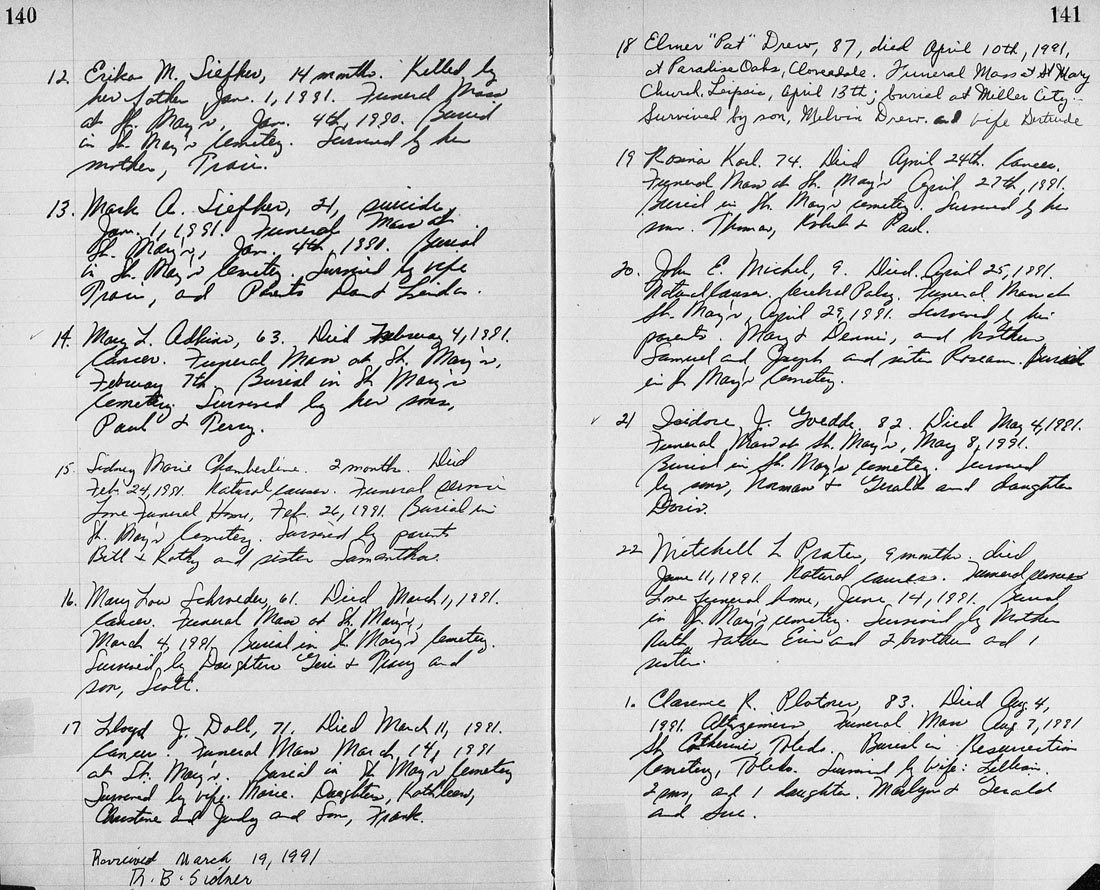 140
12. Erika M. Siefker, 14 months. Killed by
her father Jan. 1, 1991. Funeral Mass
at St. Mary's, Jan. 4th, 1990. Burial
in St. Mary's Cemetery. Survived by her
mother, Traci.
13. Mark A. Siefker, 21, suicide,
Jan. 1, 1991. Funeral Mass at
St. Mary's, Jan. 4th, 1991. Burial
in St. Mary's Cemetery. Survived by wife
Traci, and Parents Dan &
14. Mary L. Adkins, 63. Died February 4, 1991.
Cancer. Funeral Mass at St. Mary's,
February 7th. Burial in St. Mary's
Cemetery. Survived by her sons,
Paul & Terry.
15. Sidney Marie Chamberline. 2 months. Died
Feb. 24, 1991. Natural causes. Funeral service
Love Funeral Home, Feb. 26, 1991. Burial in
St. Mary's Cemetery. Survived by parents
Bill & Kathy and sister Samantha.
16. Mary Lou Schroeder, 61. Died March 1, 1991.
Cancer. Funeral Mass at St. Mary's,
March 4, 1991. Burial in St. Mary's Cemetery.
Survived by Daughters & and
son, Scott.
17 Lloyd J. Doll, 71. Died March 11, 1991.
Cancer. Funeral Mass March 14, 1991
at St. Mary's. Burial in St. Mary's Cemetery
Survived by wife: Marie. Daughters, Kathleen,
Christine and Judy and Son, Frank.
Reviewed March 19, 1991
Th. B. Sidner
141
18 Elmer "Pat" Drew, 87, died April 10th, 1991,
at Paradise Oaks, Cloverdale. Funeral Mass at St Mary
Church, Leipsic, April 13th; burial at Miller City.
Survived by son, Melvin Drew. and wife Gertrude
19 Rosina 74. Died April 24th. Cancer.
Funeral Mass at St. Mary's April 27th, 1991.
Burial in St. Mary's cemetery. Survived by her
sons. Thomas, Robert & Paul.
20. John E. Michel, 9. Died April 25, 1991.
Natural Causes. Cerebral Palsy. Funeral Mass at
St. Mary's, April 29, 1991. Survived by his
parents. Mary & Dennis, and brothers
Samuel and Joseph and sister Roseann. Burial
in St Mary's Cemetery.
21 Isidore J. Goedde, 82. Died May 4, 1991.
Funeral Mass at St. Mary's, May 8, 1991.
Burial in St. Mary's cemetery. Survived
by sons, Norman & Gerald and daughter
Doris.
22 Mitchell L Prater, 9 months. died
June 11, 1991. Natural causes. Funeral services
Love funeral home, June 14, 1991. Burial
in St. Mary's cemetery. Survived by Mother
Ruth, Father Eric and 2 brothers and 1
sister.
1. Clarence R. Plotner, 83. Died Aug. 4,
1991. Altzgemers Funeral Mass Aug 7, 1991
St. Catherine, Toledo. Burial in Resurrection
Cemetery, Toledo. Survived by wife: Lillian.
2 sons, and 1 daughter. Marlyn & Gerald
and Sue.